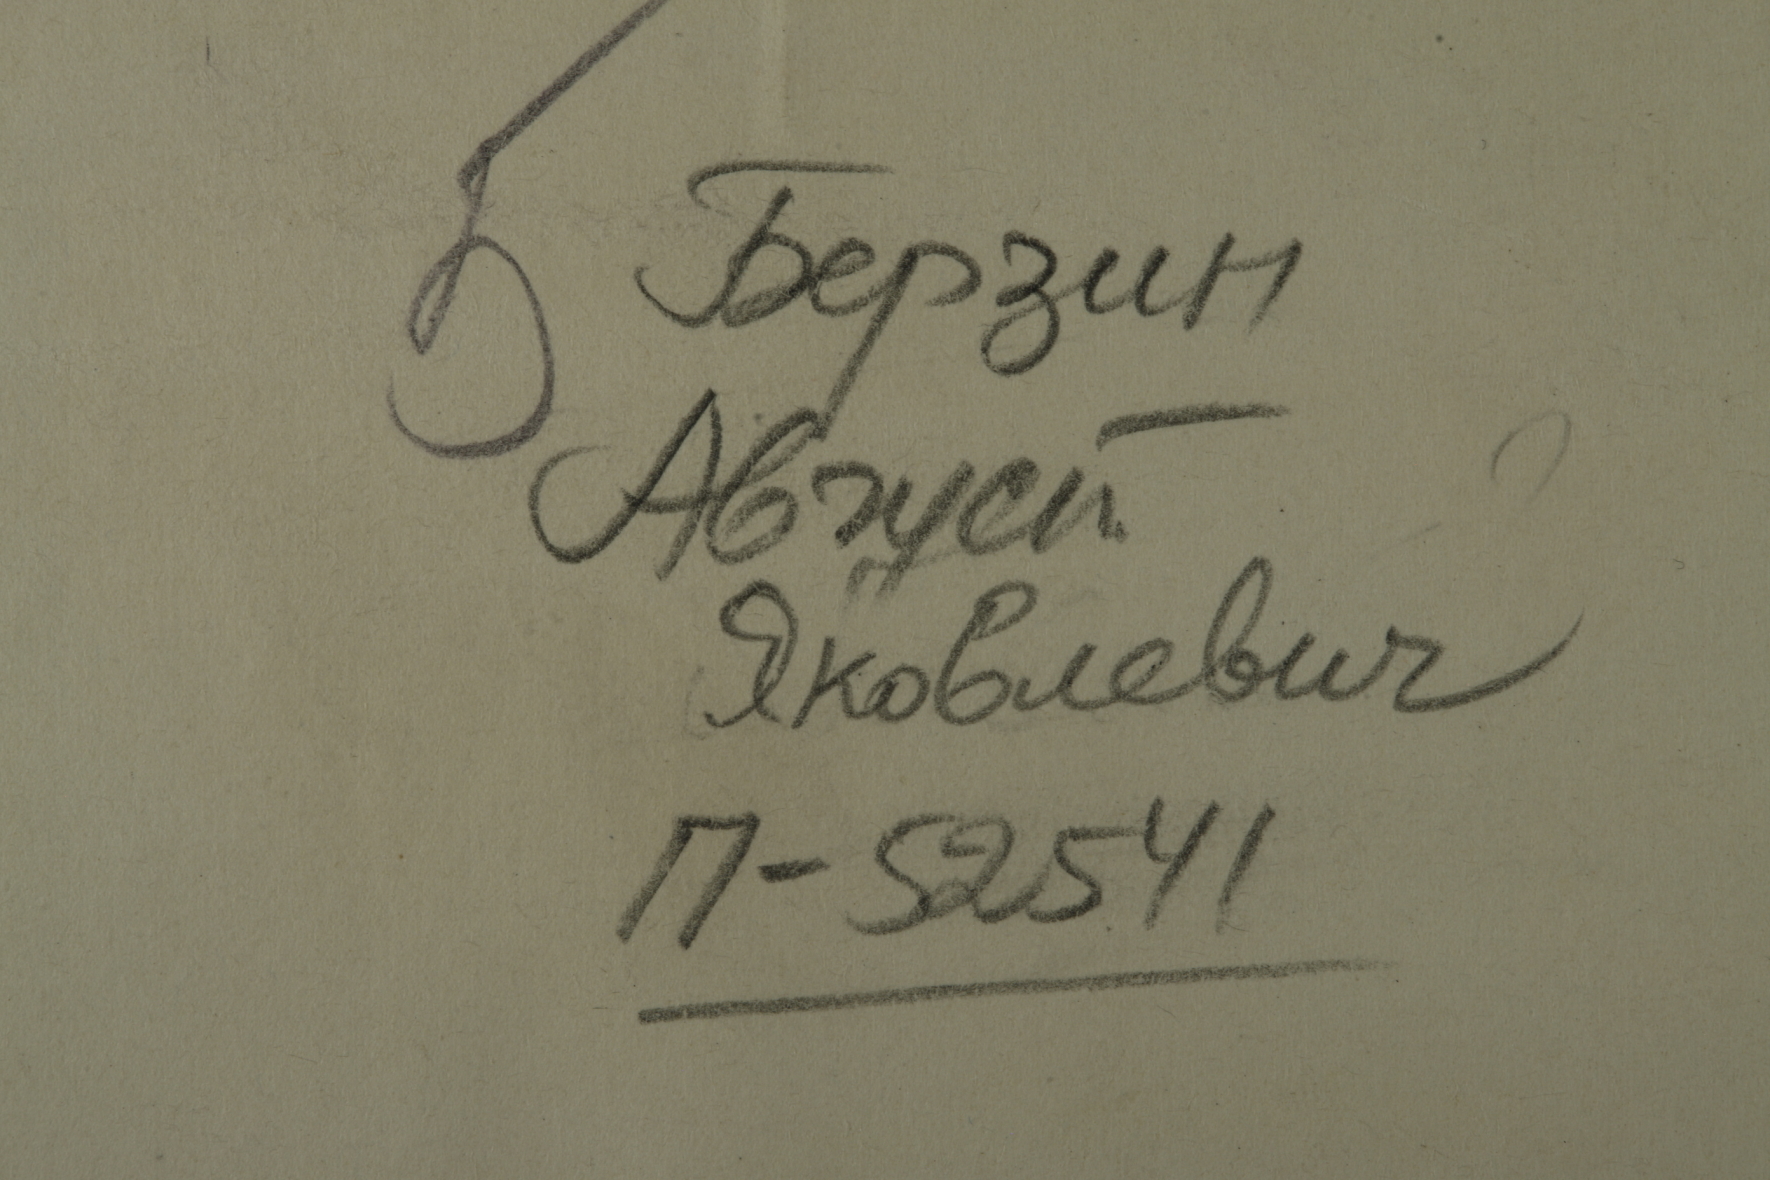 Берзин
Август
Яковлевич
П-52541